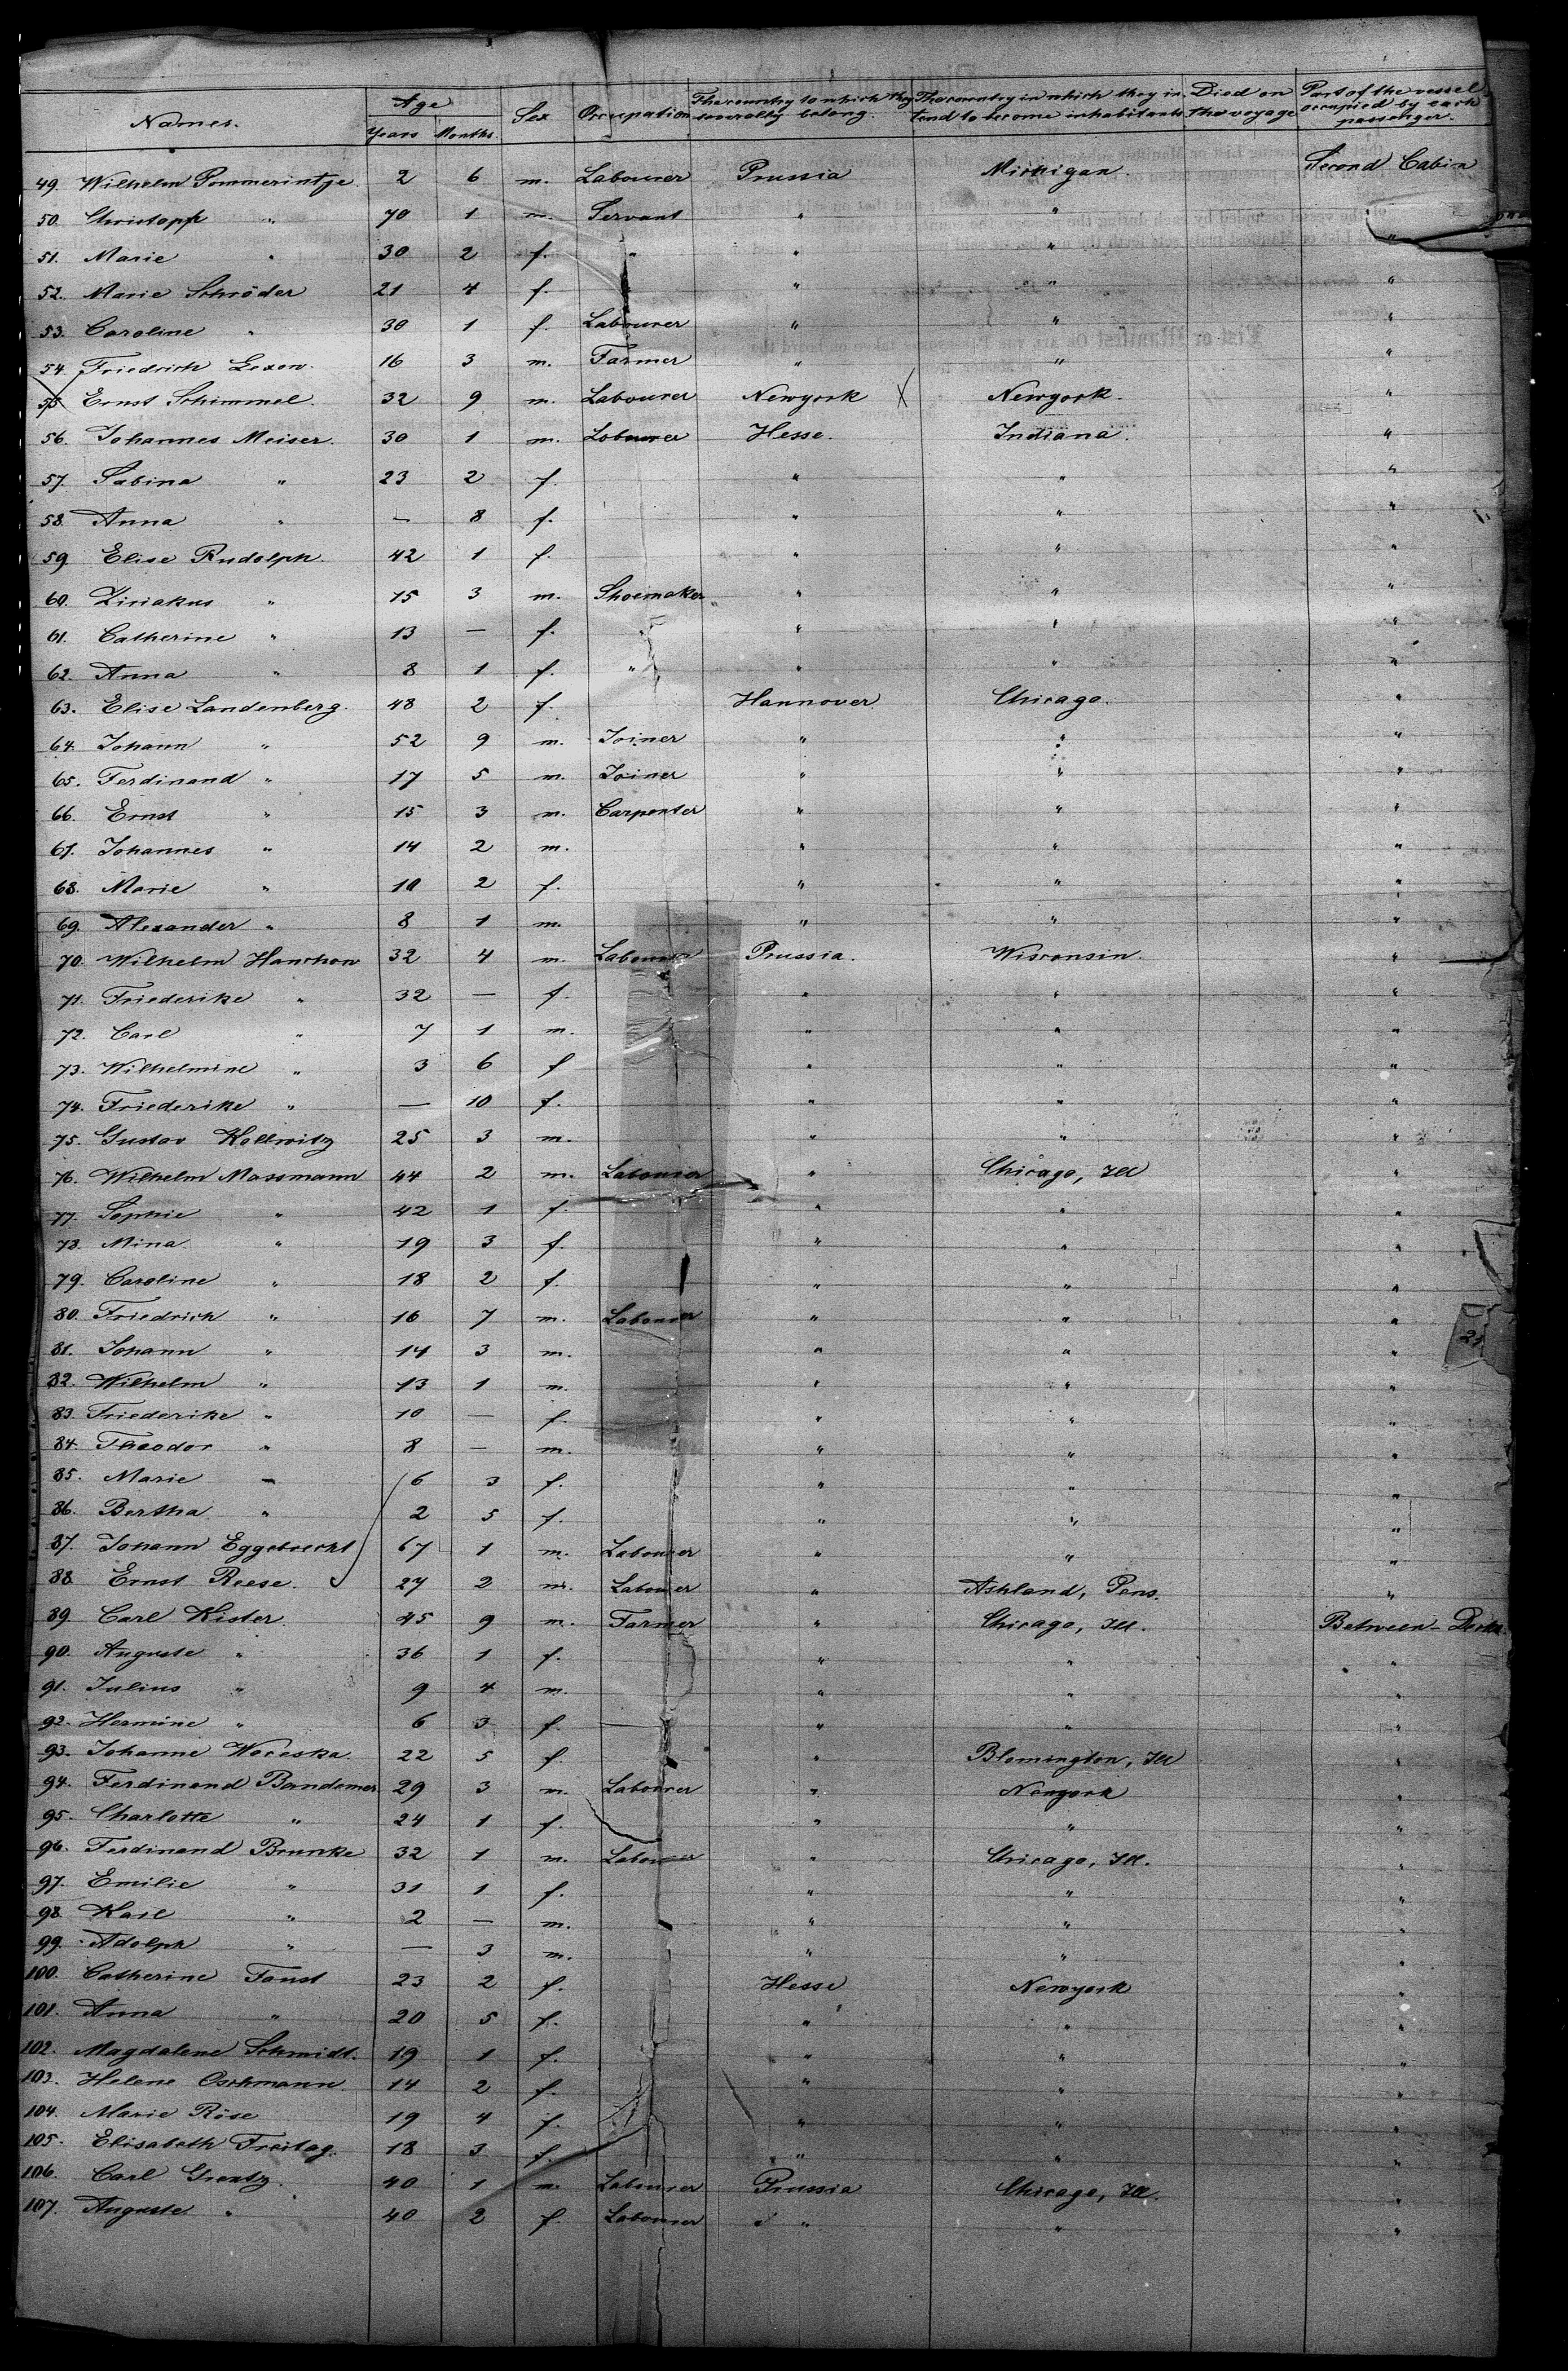 Names. Age Sex Occupation The country to which they severally belong. The country in which they intend to become inhabitants Died on the voyage Part of the vessel occupied by each passenger.
Years Months.
49. Wilhelm Pommerintje 2 6 m. Labourer Prussia Michigan. Second Cabin
50. Christopp " 70 1 m. Servant " " "
51. Marie " 30 2 f. " " " "
52. Marie Schröder 21 4 f. " " "
53. Caroline " 30 1 f. Labourer " " "
54. Friedrich Lexow. 16 3 m. Farmer " " "
55. Ernst Schimmel. 32 9 m. Labourer Newyork X Newyork. "
56. Johannes Meiser. 30 1 m. Labourer Hesse. Indiana. "
57. Sabina " 23 2 f. " " "
58. Anna " — 8 f. " " "
59. Elise Rudolph. 42 1 f. " " "
60. Ziriakus " 15 3 m. Shoemaker " " "
61. Catherine " 13 — f. " " " "
62. Anna " 8 1 f. " " " "
63. Elise Landenberg. 48 2 f. Hannover. Chicago. "
64. Johann " 52 9 m. Joiner " " "
65. Ferdinand " 17 5 m. Joiner " " "
66. Ernst " 15 3 m. Carpenter " " "
67. Johannes " 14 2 m. " " "
68. Marie " 10 2 f. " " "
69. Alexander " 8 1 m. " " "
70. Wilhelm Hanchon 32 4 m. Labourer Prussia. Wisconsin. "
71. Friederike " 32 — f. " " "
72. Carl " 7 1 m. " " "
73. Wilhelmine " 3 6 f " " "
74. Friederike " — 10 f. " " "
75. Gustav Kollwitz 25 3 m. " " "
76. Wilhelm Massmann 44 2 m. Labourer " Chicago, Ill "
77. Sophie " 42 1 f. " " "
78. Mina " 19 3 f. " " "
79. Caroline " 18 2 f. " " "
80. Friedrich " 16 7 m. Labourer " " "
81. Johann " 14 3 m. " " "
82. Wilhelm " 13 1 m. " " "
83. Friederike " 10 — f. " " "
84. Theodor " 8 — m. " " "
85. Marie " 6 3 f. " " "
86. Bertha " 2 5 f. " " "
87. Johann Eggebrecht 67 1 m. Labourer " " "
88 Ernst Reese. 27 2 m. Labourer " Ashland, Pens. "
89. Carl Kister. 45 9 m. Farmer " Chicago, Ill. Between-Decks.
90. Auguste " 36 1 f. " " "
91. Julius " 9 4 m. " " "
92. Hermine " 6 3 f. " " "
93. Johanne Woceska. 22 5 f. " Blomington, Ill "
94. Ferdinand Bandemer 29 3 m. Labourer " Newyork "
95. Charlotte " 24 1 f. " " "
96. Ferdinand Brunke 32 1 m. Labourer " Chicago, Ill. "
97. Emilie " 31 1 f. " " "
98. Karl " 2 — m. " " "
99. Adolph " — 3 m. " " "
100. Catherine Faust 23 2 f. Hesse Newyork "
101. Anna " 20 5 f. " " "
102. Magdalene Schmidt. 19 1 f. " " "
103. Helene Oschmann. 14 2 f. " " "
104. Marie Röse 19 4 f. " " "
105. Elisabeth Freitag. 18 3 f. " " "
106. Carl Grentz. 40 1 m. Labourer Prussia Chicago, Ill. "
107. Auguste " 40 2 f. Labourer " " "